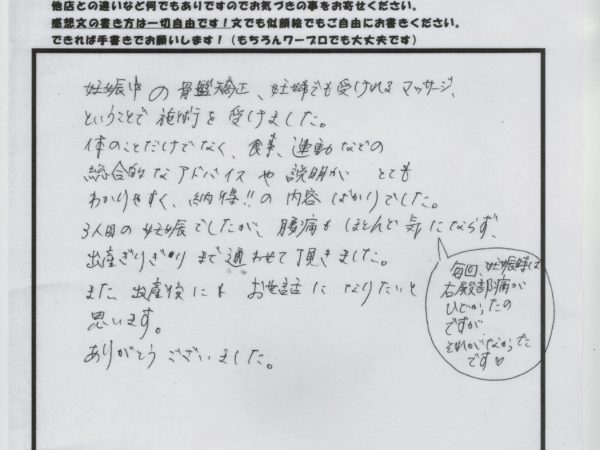 他店との違いなど何でもありですのでお気づきの事をお寄せください。
感想文の書き方は一切自由です!文でも似顔絵でもご自由にお書きください。
できれば手書きでお願いします!(もちろんワープロでも大丈夫です)
妊娠中の骨盤矯正、妊婦でも受けれるマッサージ、
ということで施術を受けました。
体のことだけでなく、食事、運動などの
総合的なアドバイスや説明がとても
わかりやすく、納得!!の内容ばかりでした。
3人目の妊娠でしたが、腰痛もほとんど気にならず、
出産ぎりぎりまで通わせて頂きました。
また、出産後にもお世話になりたいと
思います。
ありがとうございました。
毎回、妊娠時は
右殿部痛が
ひどかったの
ですが、
それがなかったで
です♡